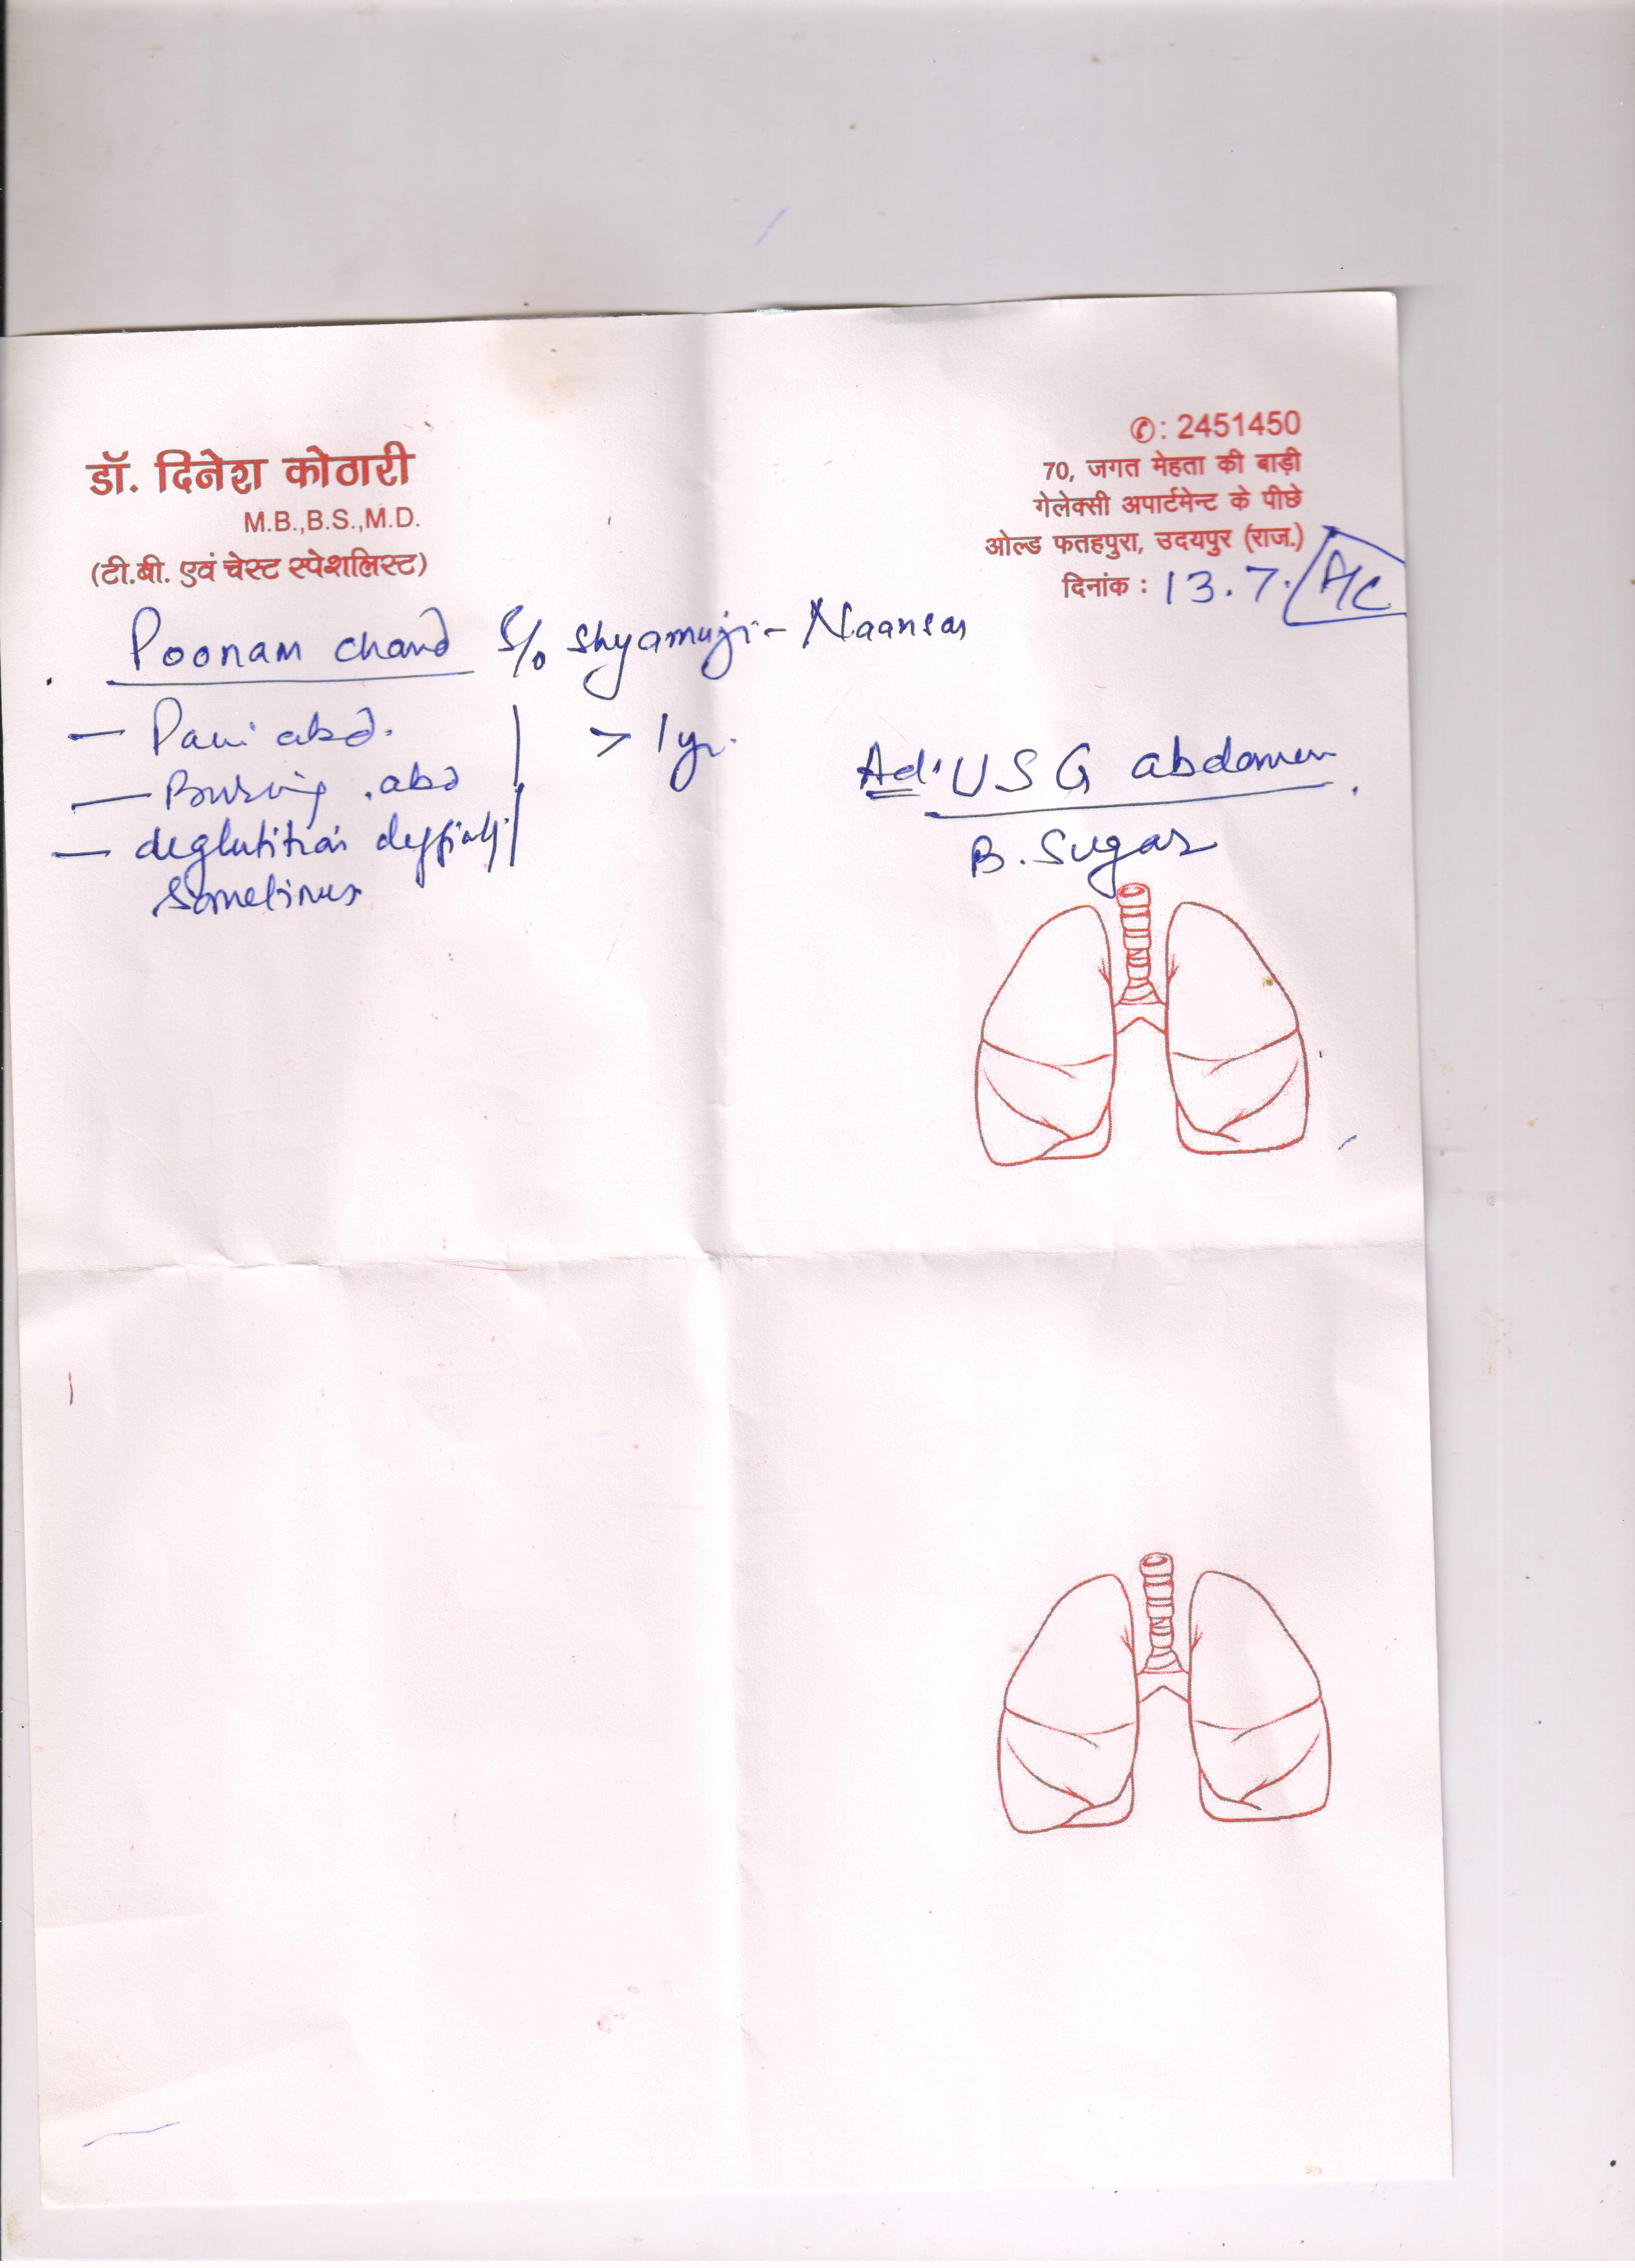 डॉ. दिनेश कोठारी
M.B.,B.S.,M.D.
(टी.बी. एवं चेस्ट स्पेशलिस्ट)
✆: 2451450
70, जगत मेहता की बाड़ी
गेलेक्सी अपार्टमेन्ट के पीछे
ओल्ड फतहपुरा, उदयपुर (राज.)
दिनांक : 13.7. A/C
Poonam chand S/o Shyamuji-
— Pain abd. > 1 yr.
— Burning abd
— deglutition
Sometimes
Ad. USG abdomen
B. Sugar